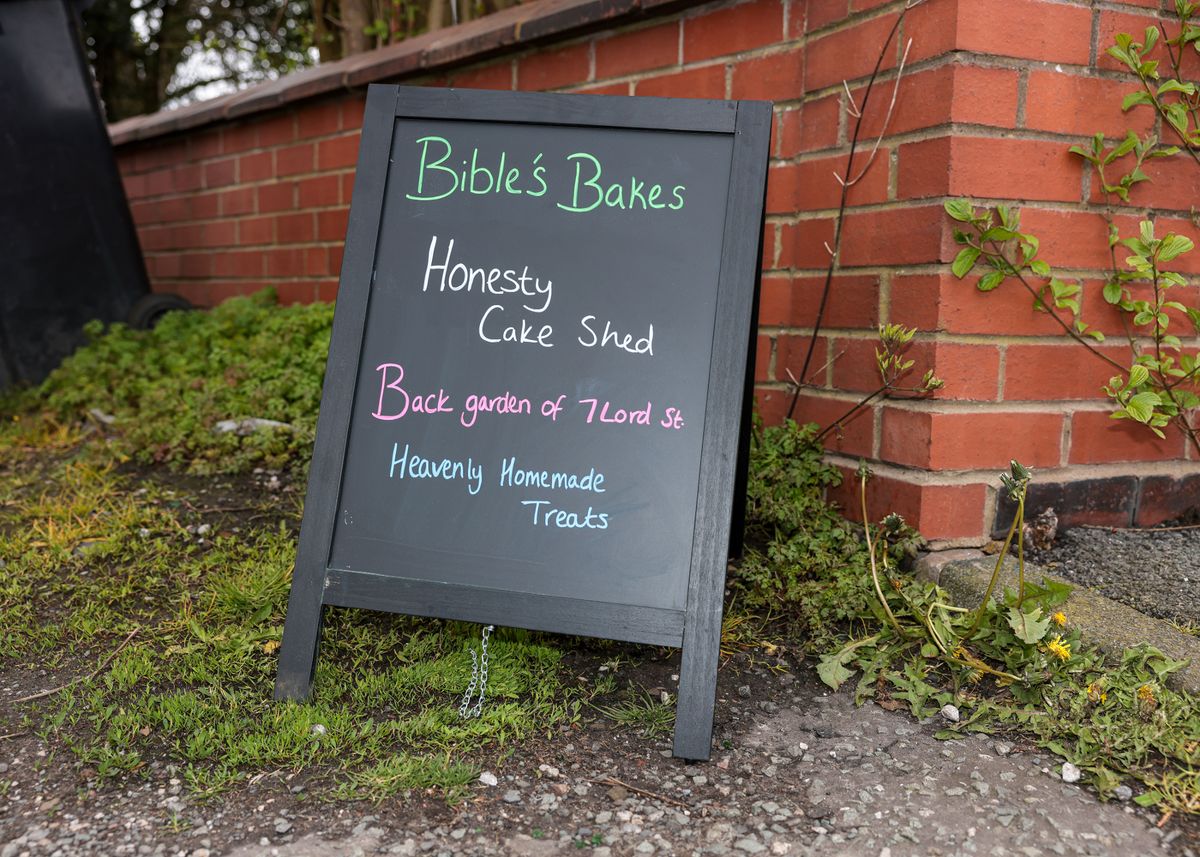 Bible's Bakes
Honesty
Cake Shed
Back garden of 7 Lord St.
Heavenly Homemade
Treats